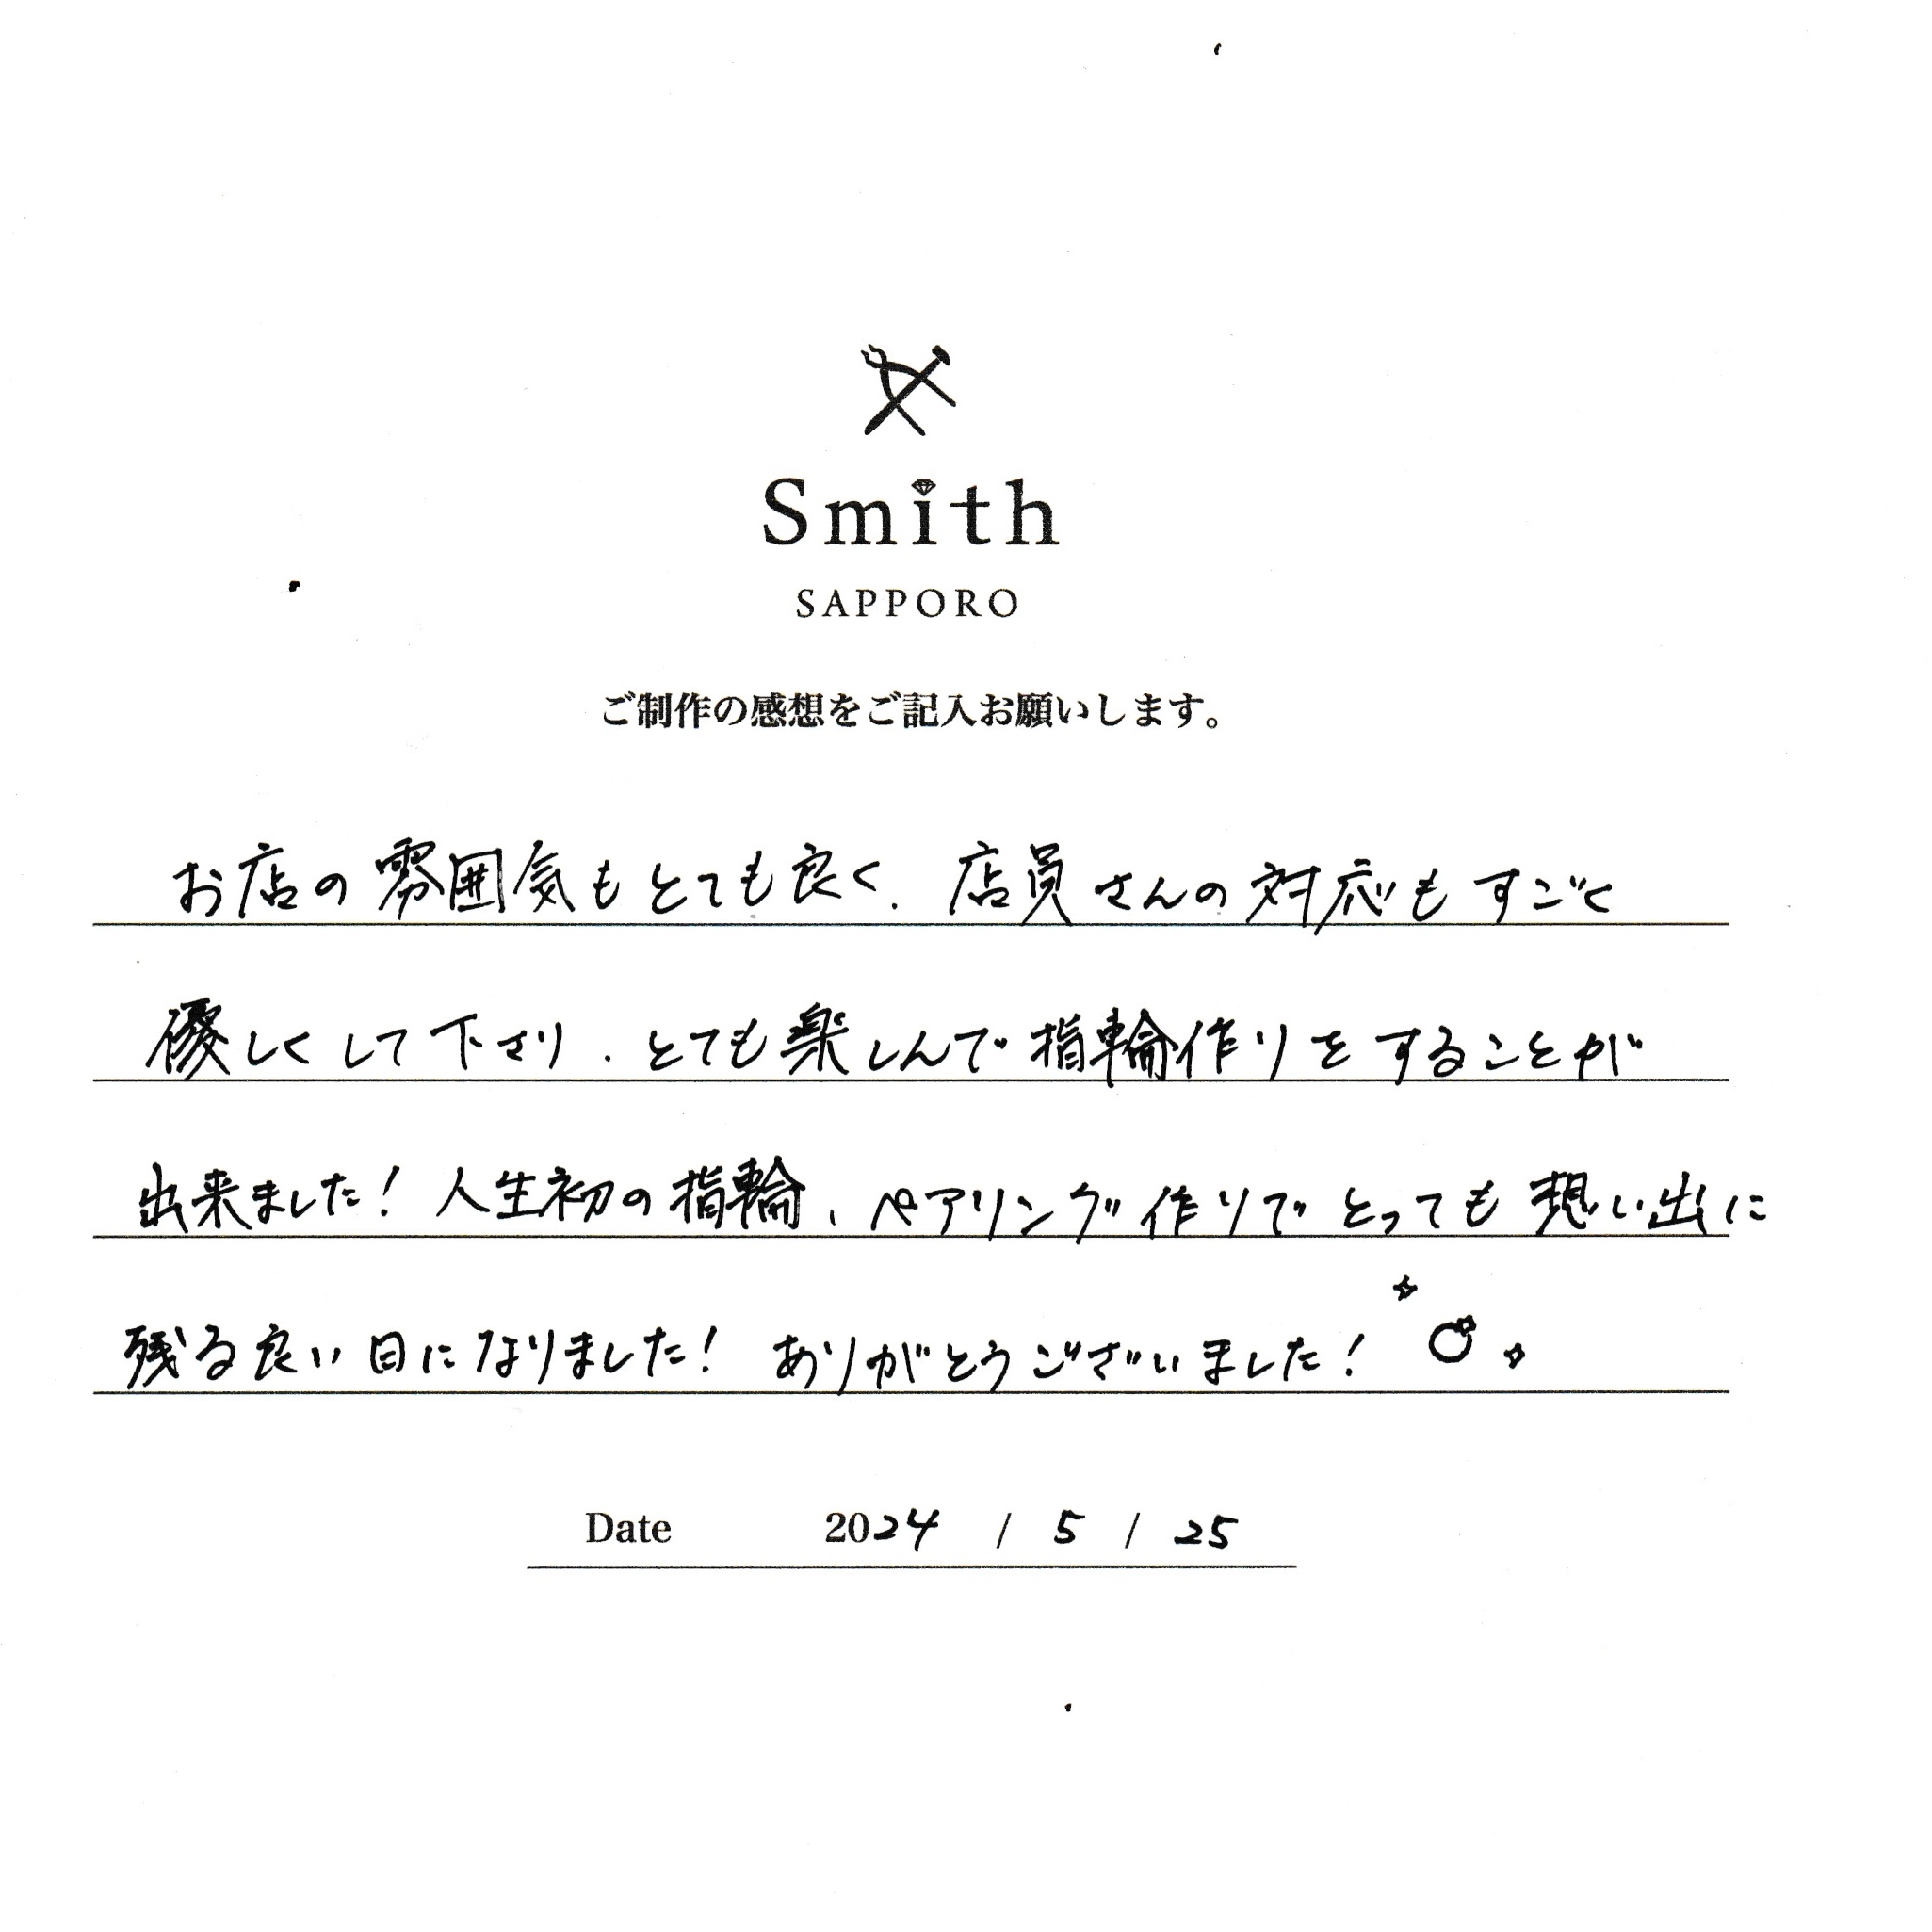 Smith
SAPPORO
ご制作の感想をご記入お願いします。
お店の雰囲気もとても良く、店員さんの対応もすごく
優しくして下さり、とても楽しんで指輪作りをすることが
出来ました！人生初の指輪、ペアリング作りでとっても想い出に
残る良い日になりました！ありがとうございました！
Date 2024 / 5 / 25